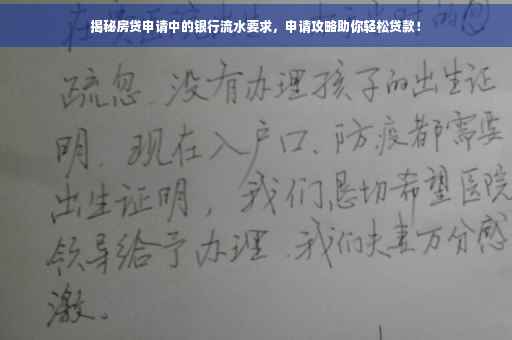 揭秘房贷申请中的银行流水要求，申请攻略助你轻松贷款！
疏忽、没有办理孩子的出生证
明、现在入户口、防疫都需要
出生证明，我们恳切希望医院
领导给予办理、我们夫妻万分感
激。